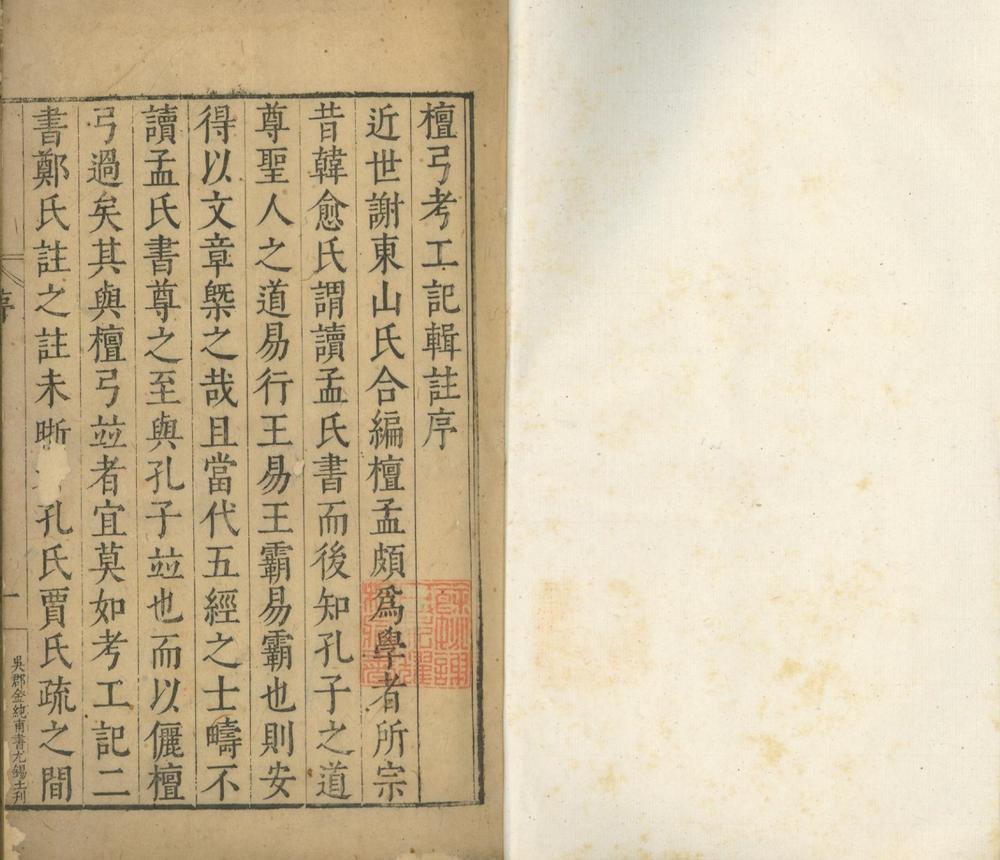 檀弓考工記輯註序
近世謝東山氏合編檀孟頗爲學者所宗
昔韓愈氏謂讀孟氏書而後知孔子之道
尊聖人之道易行王易王霸易霸也則安
得以文章槩之哉且當代五經之士疇不
讀孟氏書尊之至與孔子竝也而以儷檀
弓過矣其與檀弓竝者宜莫如考工記二
書鄭氏註之註未晣孔氏賈氏疏之間
序
一
吳郡金純甫書尤錫土刊